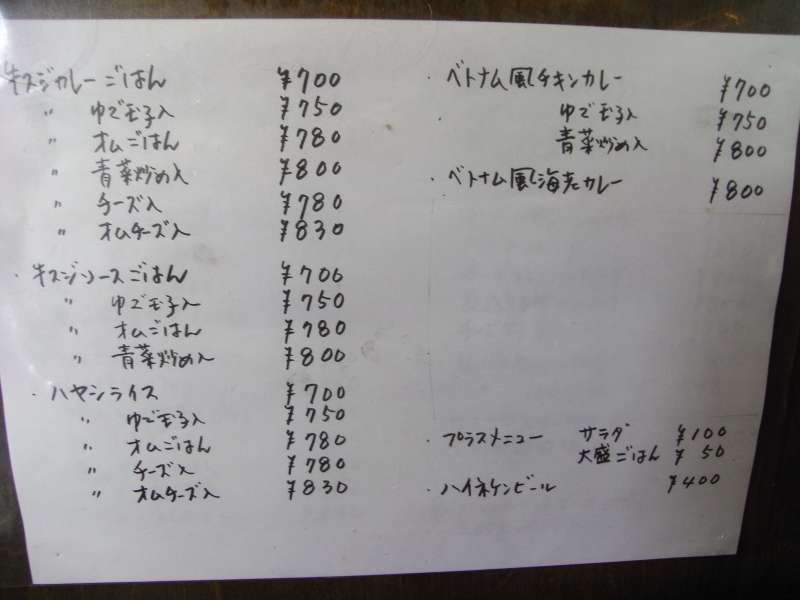 牛スジカレーごはん ¥700
〃 ゆで玉子入 ¥750
〃 オムごはん ¥780
〃 青菜炒め入 ¥800
〃 チーズ入 ¥780
〃 オムチーズ入 ¥830
・牛スジソースごはん ¥700
〃 ゆで玉子入 ¥750
〃 オムごはん ¥780
〃 青菜炒め入 ¥800
・ハヤシライス ¥700
〃 ゆで玉子入 ¥750
〃 オムごはん ¥780
〃 チーズ入 ¥780
〃 オムチーズ入 ¥830
・ベトナム風チキンカレー ¥700
ゆで玉子入 ¥750
青菜炒め入 ¥800
・ベトナム風海老カレー ¥800
・プラスメニュー サラダ ¥100
大盛ごはん ¥50
・ハイネケンビール ¥400